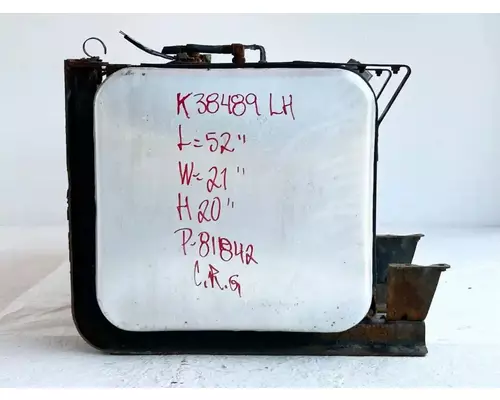 K38489 LH
L=52"
W=21"
H 20"
P-811842
C.R.G